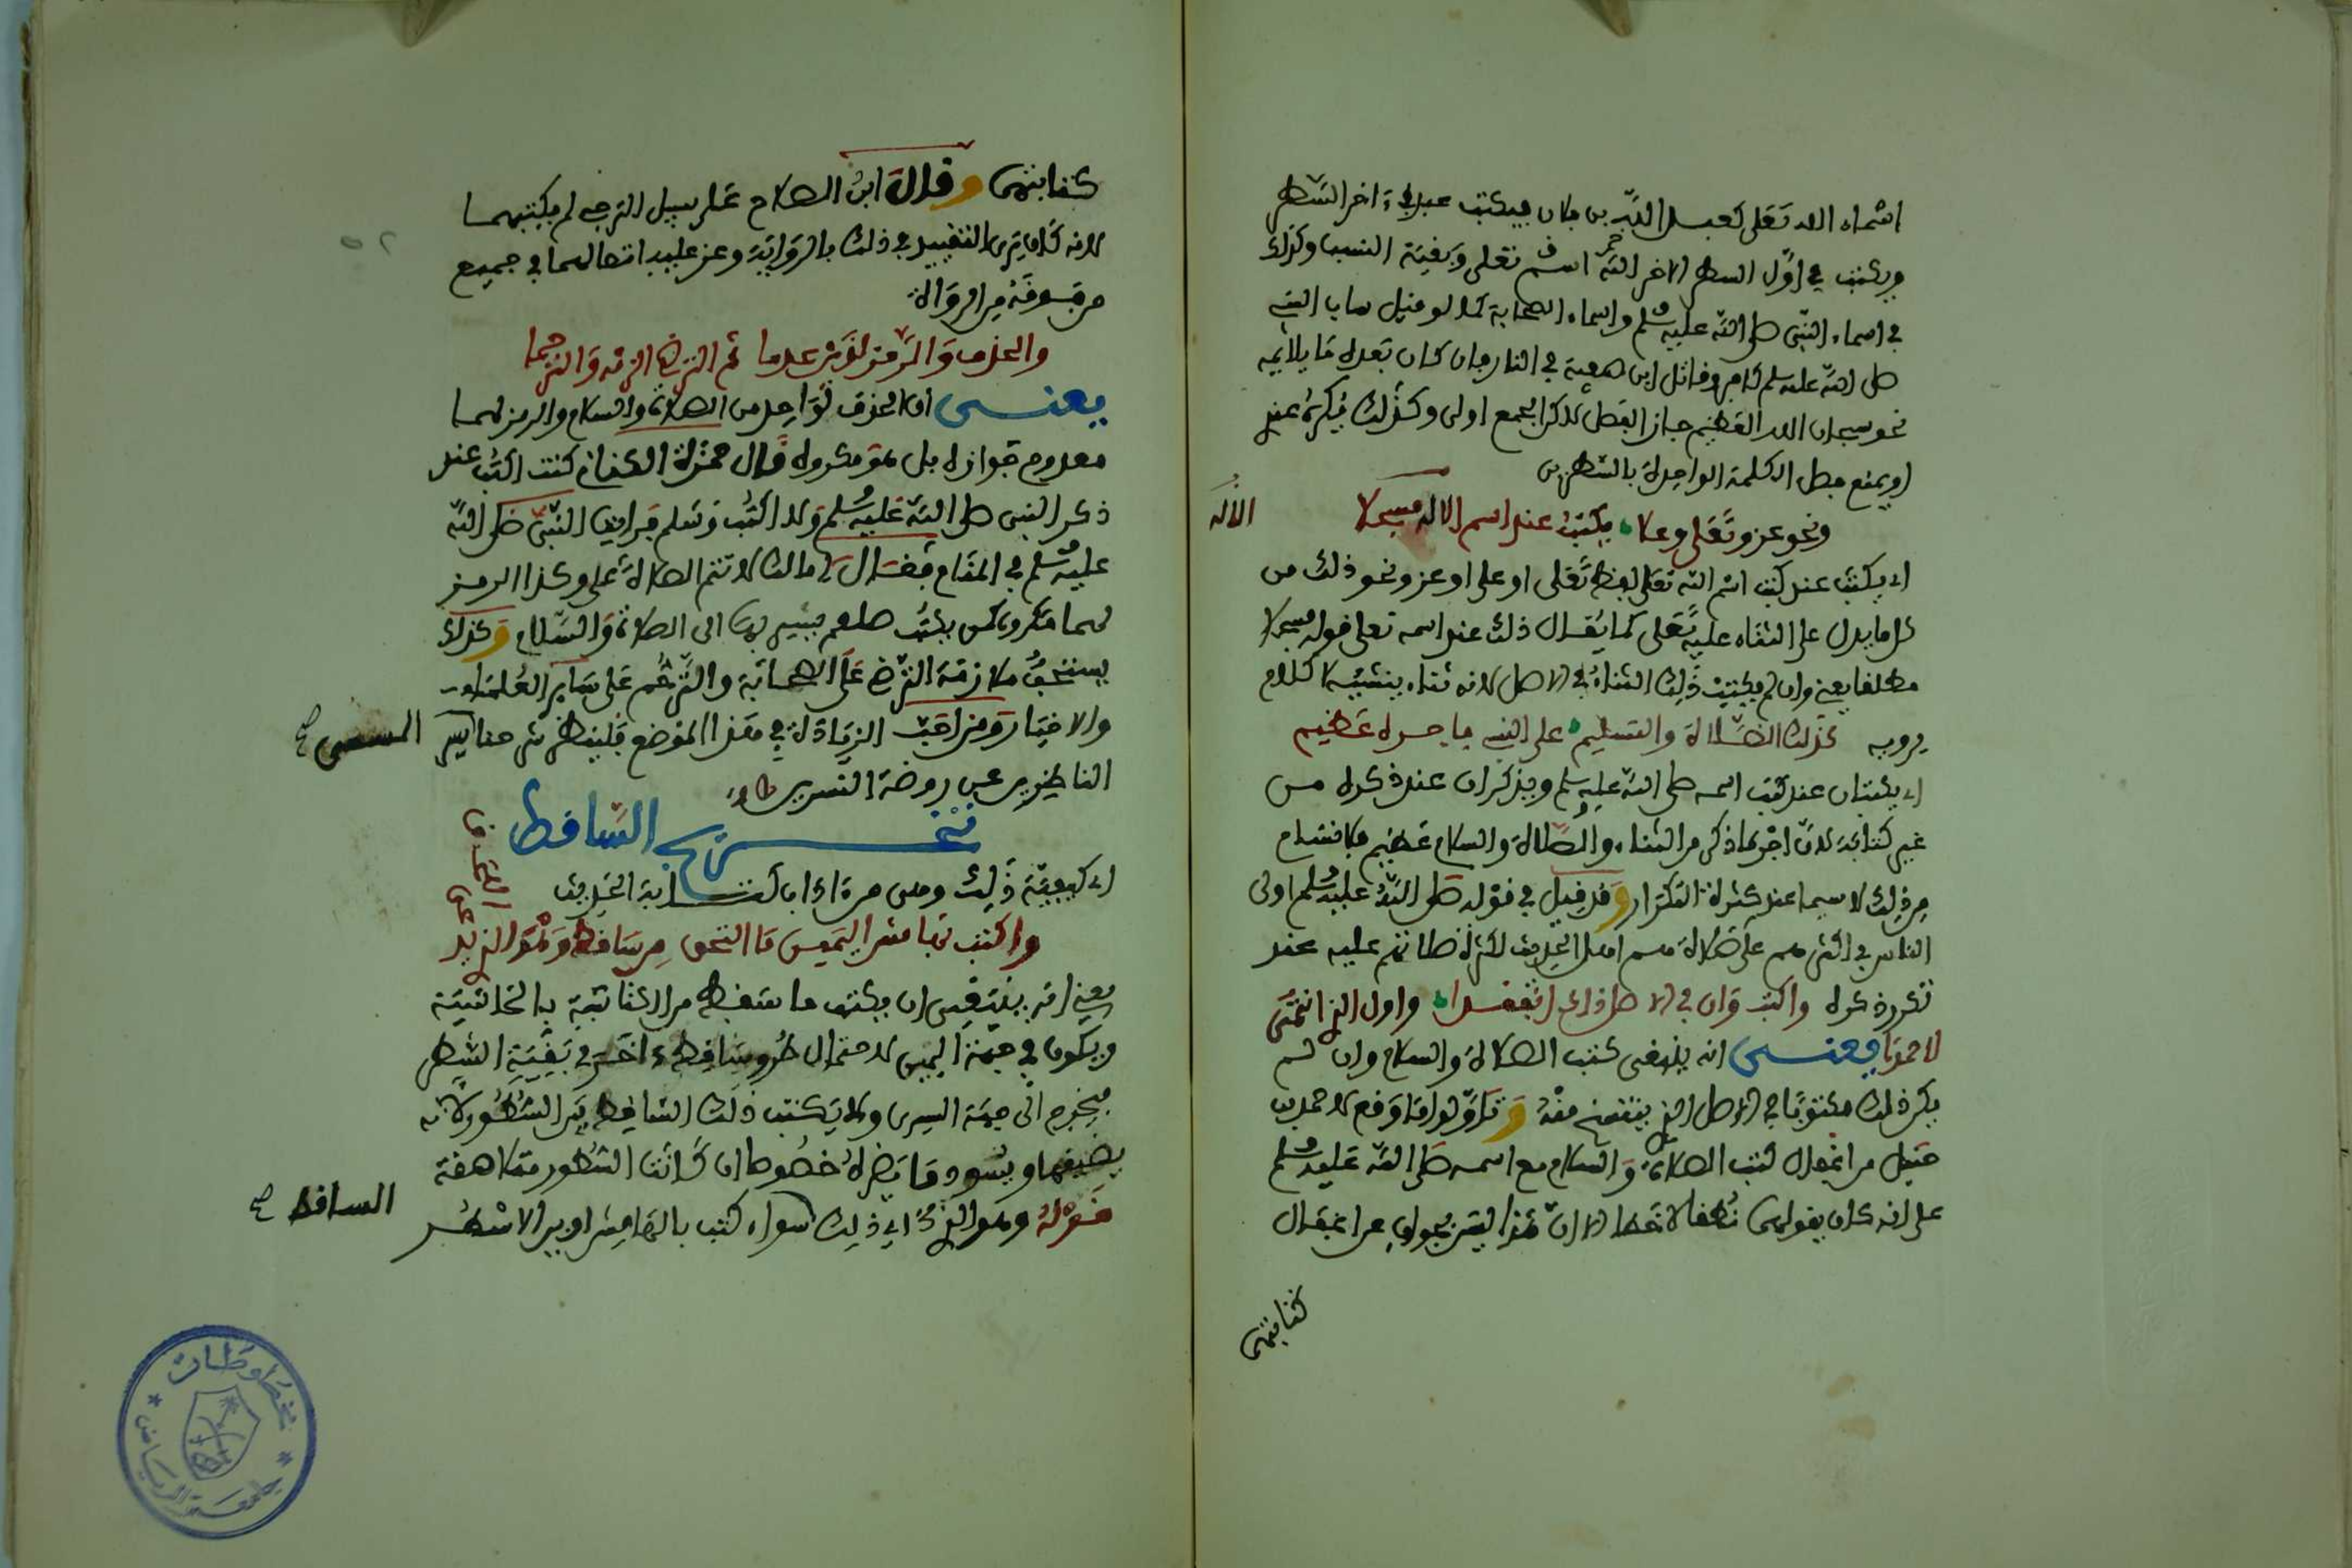 اسماء الله تعلى كعبد الله بن فلان فيكتب عبد في ءاخر السطر
ويكتب في اول السطر الاخر الله اسم تعلى وبقية النسب وكذلك
في اسماء النبي صلى الله عليه وسلم واسماء الصحابة كما لو قيل ساب النبي
صلى الله عليه وسلم كافر وقاتل ابن صفية في النار فان كان بعده ما يلايمه
نحو سبحان الله العظيم جاز الفصل لاكن الجمع اولى وكذلك يكره عند
او يمنع فصل الكلمة الواحدة بالسطرين
ونحو عز وتعلى وعلا يكتب عند اسم الاله مسجلا
الاله
اي يكتب عند كتب اسم الله تعلى لفظ تعلى او على او عز ونحو ذلك من
كل ما يدل على الثناء عليه تعلى كما يقال ذلك عند اسمه تعلى قوله مسجلا
مطلقا يعني وان لم يكتب ذلك الثناء في الاصل لانه ثناء ينشيه لا كلام
يرويه كذلك الصلاة والتسليم على النبي فاجره عظيم
اي يكتبان عند كتب اسمه صلى الله عليه وسلم ويذكران عند ذكره من
غير كتابة لان اجر ما ذكر من الثناء والصلاة والسلام عظيم فلا تسام
من ذلك لا سيما عند كثرة التكرار وقد قيل في قوله صلى الله عليه وسلم اولى
الناس بي اكثرهم علي صلاة هم اهل الحديث لكثرة صلاتهم عليه عند
تكرر ذكره واكتب وان في الاصل ذاك اغفلا واول الذ انتمى
لاحمدا يعنى انه ينبغي كتب الصلاة والسلام وان لم
يكن ذلك مكتوبا في الاصل الذي ينتسخ منه وتاولوا ما وقع لاحمد بن
حنبل من اغفال كتب الصلاة والسلام مع اسمه صلى الله عليه وسلم
على انه كان يقولهما نطقا لا خطا الا ان هذا ليس بجواب عن اغفال
كتابتهما
كتابتهما وقال ابن الصلاح على سبيل الترجي لم يكتبهما
لانه كان يرى التقييد في ذلك بالرواية وعز عليه اتصالهما في جميع
من فوقه من الرواة
والحذف والرمز لذين عدما ثم الترضي الزمه والترحما
يعنى ان الحذف لواحد من الصلاة والسلام والرمز لهما
معدوم جوازه بل هو مكروه قال حمزة الكناني كنت اكتب عند
ذكر النبي صلى الله عليه وسلم ولا اكتب وسلم فرايت النبي صلى الله
عليه وسلم في المنام فقال لي ما لك لا تتم الصلاة علي وكذا الرمز
لهما مكروه كمن يكتب صلعم يشير بها الى الصلاة والسلام وكذلك
يستحب ملازمة الترضي على الصحابة والترحم على ساير العلماء
والاخيار ومن احب الزيادة في هذا الموضع فلينظر شرحنا
المسمى صح
الناظرين عن روضة النسرين
تخريج الساقط
اي كيفية ذلك وهى من ءاداب كتابة الحديث
واكتب بهامش اليمين ما التحق من ساقط وهو الذ يدعى اللحق
يعني انه ينبغي ان يكتب ما سقط من الكتابة بالحاشية
ويكون في جهة اليمين لاحتمال طرو ساقط ءاخر في بقية السطر
فيخرج الى جهة اليسرى ولا يكتب ذلك الساقط بين السطور لانه
يضيقها ويسود ما يقرا خصوصا ان كانت السطور متلاصقة
قوله وهو الذ اي ذلك سواء كتب بالهامش او بين الاسطر
الساقط صح
مخطوطات
جامعة الرياض